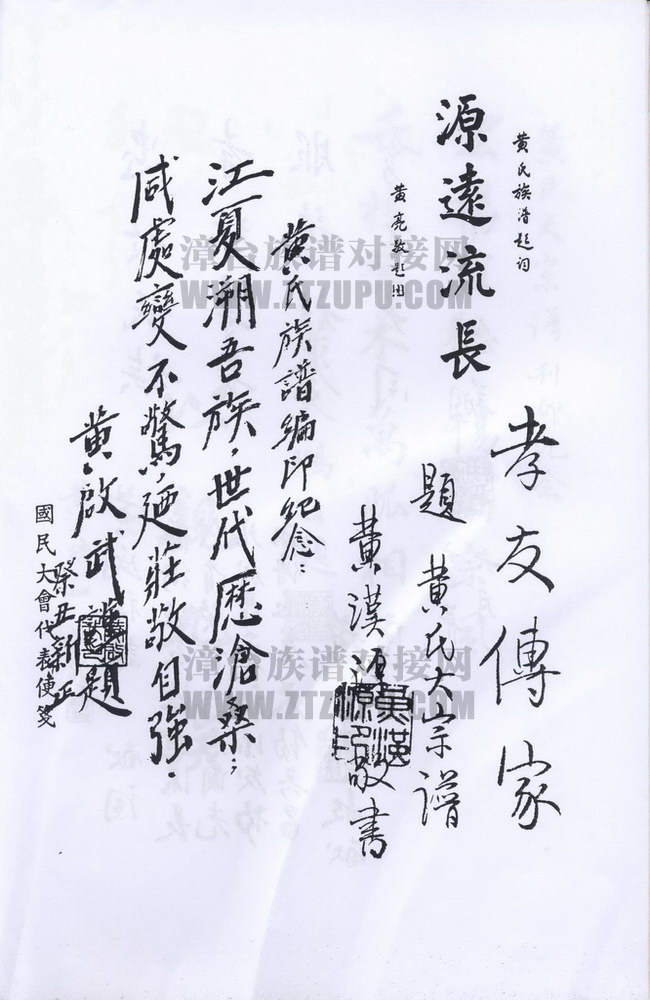 黄氏族谱题词
源遠流長
黄亮敬题
孝友傳家
題 黄氏大宗譜
黄漢源敬書
黄漢源印
黄氏族譜編印紀念：
江夏溯吾族，世代歷滄桑；
咸處變不驚，廼莊敬自強．
黄啟武謹題
癸丑新正
國民大會代表便箋
漳台族谱对接网
WWW.ZTZUPU.COM
漳台族谱对接网
WWW.ZTZUPU.COM